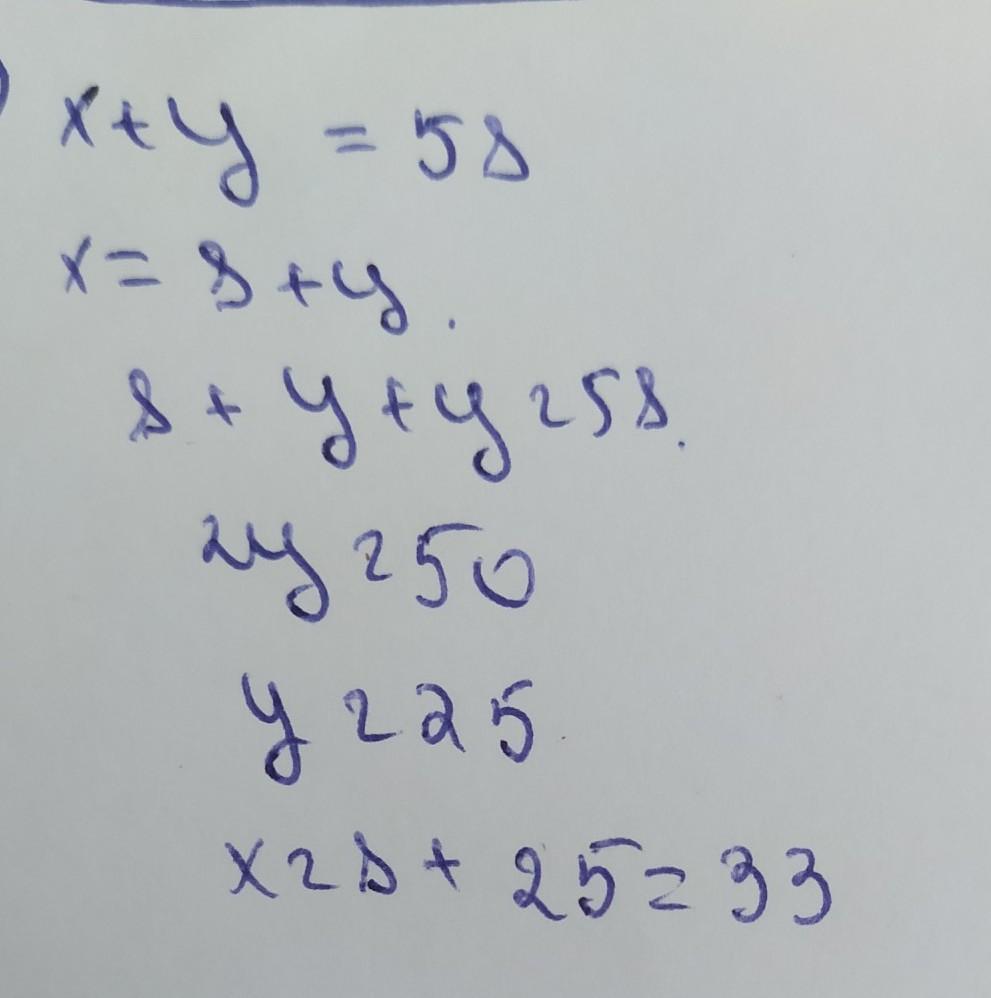 x+y = 58
x = 8 + y.
8 + y + y = 58.
2y = 50
y = 25
x = 8 + 25 = 33